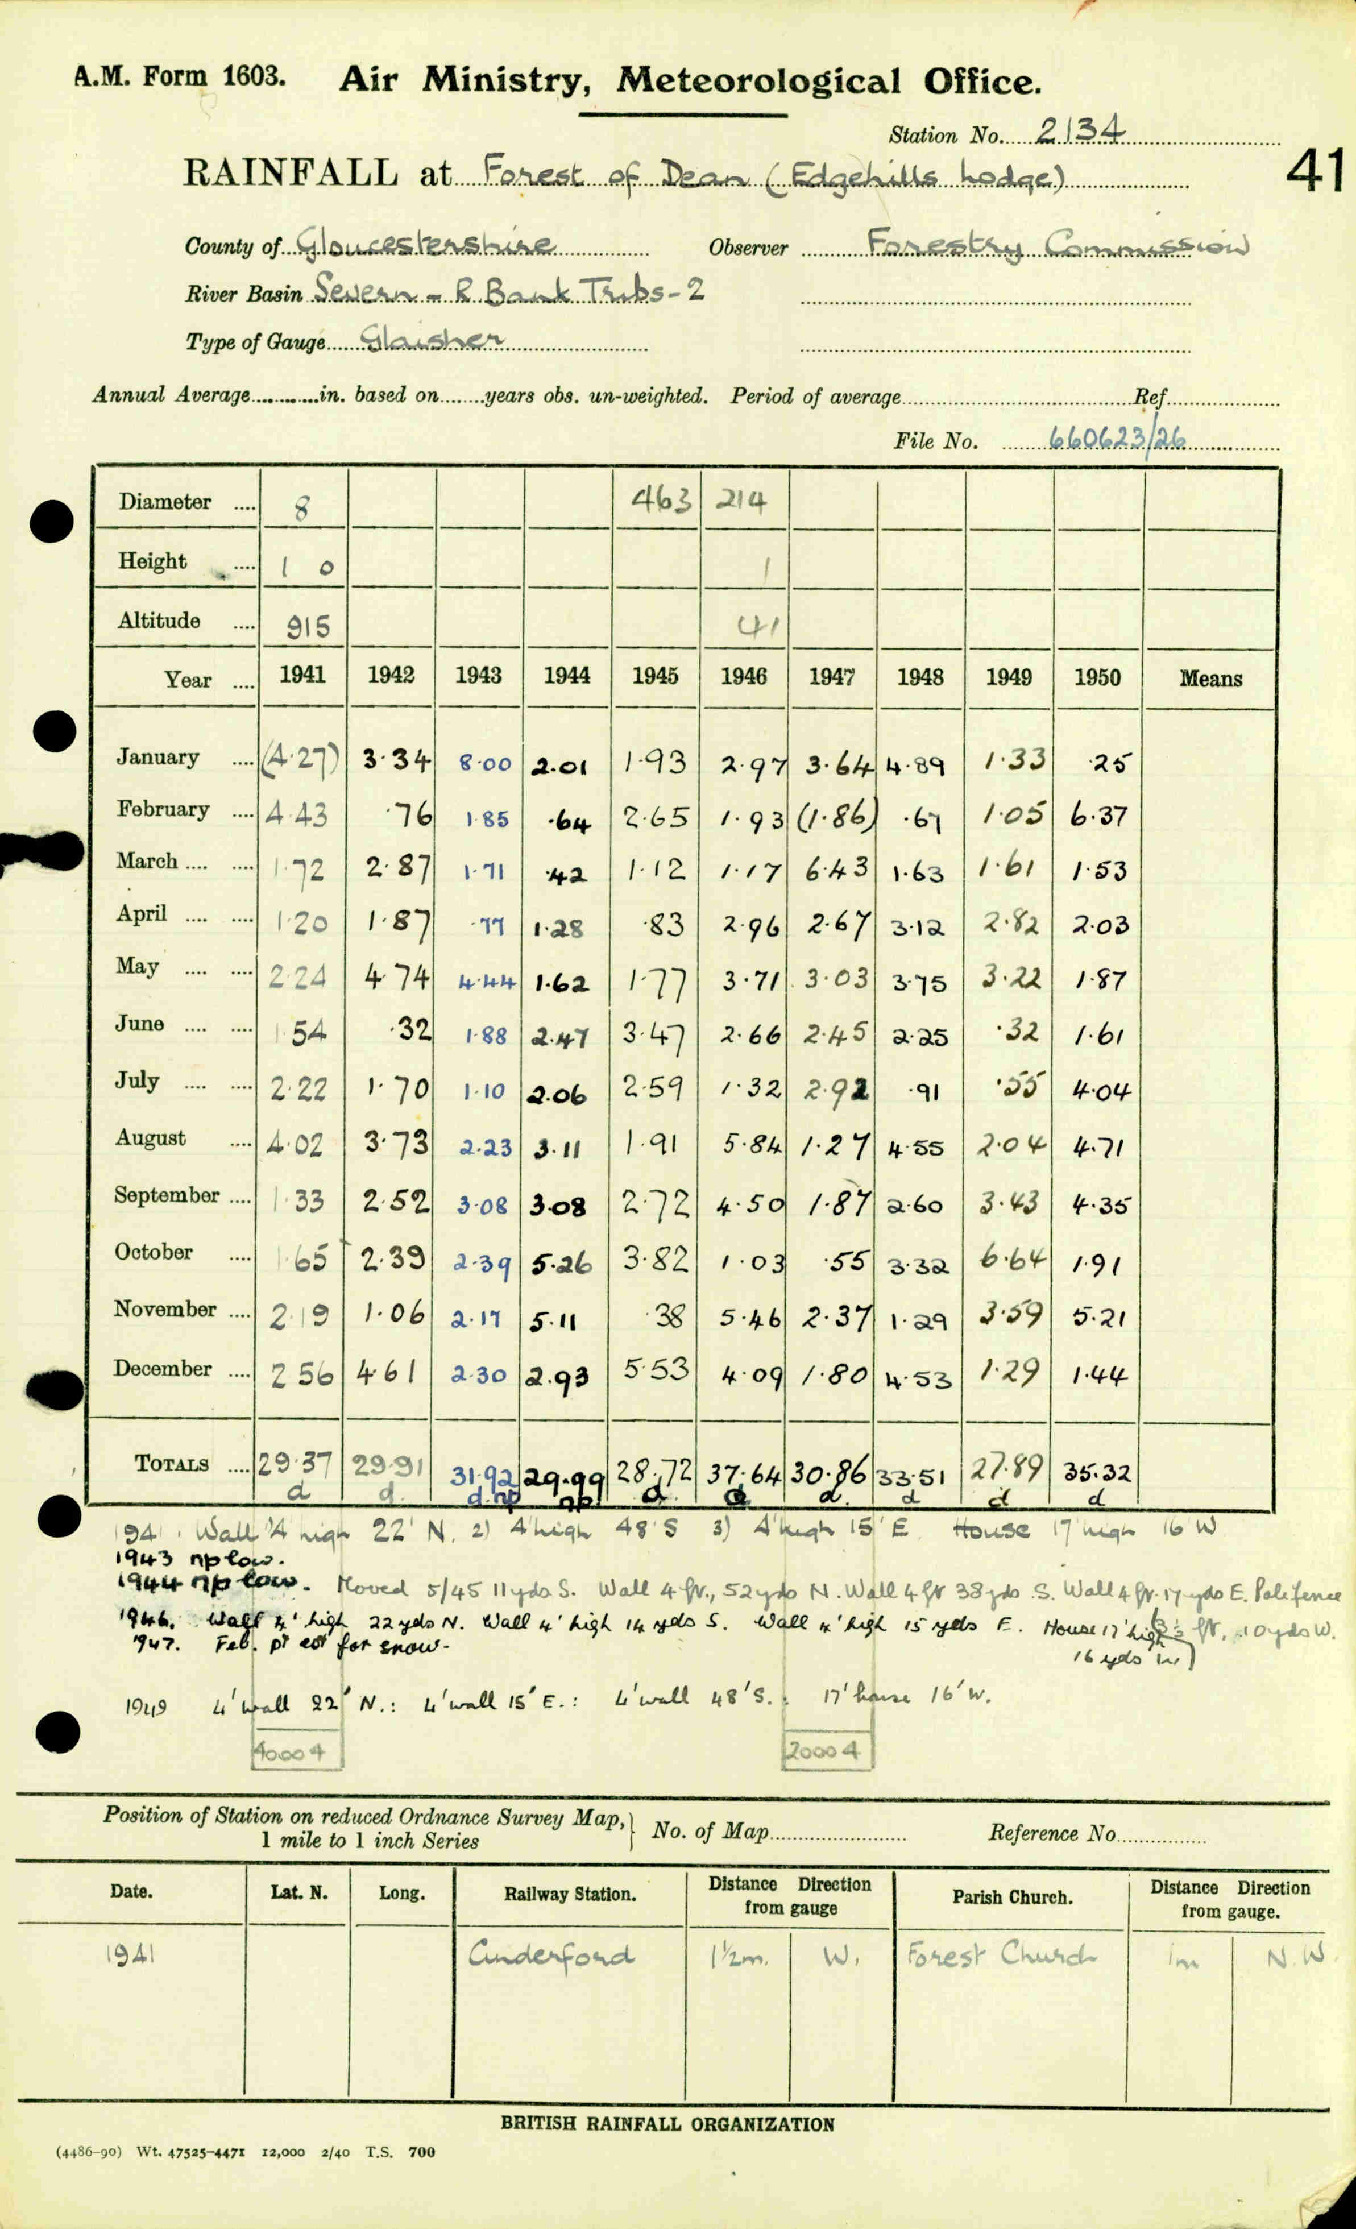 A.M. Form 1603. Air Ministry, Meteorological Office.
Station No. 2134
41
RAINFALL at Forest of Dean (Edgehills Lodge)
County of Gloucestershire Observer Forestry Commission
River Basin Severn - R Bank Tribs - 2
Type of Gauge Glaisher
Annual Average in. based on years obs. un-weighted. Period of average Ref.
File No. 660623/26
Diameter 8 463 214
Height 1 0 1
Altitude 915 41
Year 1941 1942 1943 1944 1945 1946 1947 1948 1949 1950 Means
January (4.27) 3.34 8.00 2.01 1.93 2.97 3.64 4.89 1.33 .25
February 4.43 .76 1.85 .64 2.65 1.93 (1.86) .67 1.05 6.37
March 1.72 2.87 1.71 .42 1.12 1.17 6.43 1.63 1.61 1.53
April 1.20 1.87 .77 1.28 .83 2.96 2.67 3.12 2.82 2.03
May 2.24 4.74 4.44 1.62 1.77 3.71 3.03 3.75 3.22 1.87
June 1.54 .32 1.88 2.47 3.47 2.66 2.45 2.25 .32 1.61
July 2.22 1.70 1.10 2.06 2.59 1.32 2.92 .91 .55 4.04
August 4.02 3.73 2.23 3.11 1.91 5.84 1.27 4.55 2.04 4.71
September 1.33 2.52 3.08 3.08 2.72 4.50 1.87 2.60 3.43 4.35
October 1.65 2.39 2.39 5.26 3.82 1.03 .55 3.32 6.64 1.91
November 2.19 1.06 2.17 5.11 .38 5.46 2.37 1.29 3.59 5.21
December 2.56 4.61 2.30 2.93 5.53 4.09 1.80 4.53 1.29 1.44
TOTALS 29.37 29.91 31.92 29.99 28.72 37.64 30.86 33.51 27.89 35.32
d d. d.np np d. d d. d d d
1941. Wall 4 high 22' N. 2) 4' high 48' S 3) 4' high 15' E House 17' high 16' W
1943 np low.
1944 np low. Moved 5/45 11 yds S. Wall 4 ft., 52 yds N. Wall 4 ft 38 yds S. Wall 4 ft. 17 yds E. Pale fence
1946. Wall 4' high 22 yds N. Wall 4' high 14 yds S. Wall 4' high 15 yds E. House 17' high 3½ ft, 10 yds W.
16 yds W)
1947. Feb. pt est for snow.
1949 4' wall 22' N.: 4' wall 15' E.: 4' wall 48' S.: 17' house 16' W.
40004 20004
Position of Station on reduced Ordnance Survey Map, 1 mile to 1 inch Series } No. of Map Reference No
Date. Lat. N. Long. Railway Station. Distance Direction from gauge Parish Church. Distance Direction from gauge.
1941 Cinderford 1½m. W. Forest Church 1m N.W.
BRITISH RAINFALL ORGANIZATION
(4486-90) Wt. 47525-4471 12,000 2/40 T.S. 700